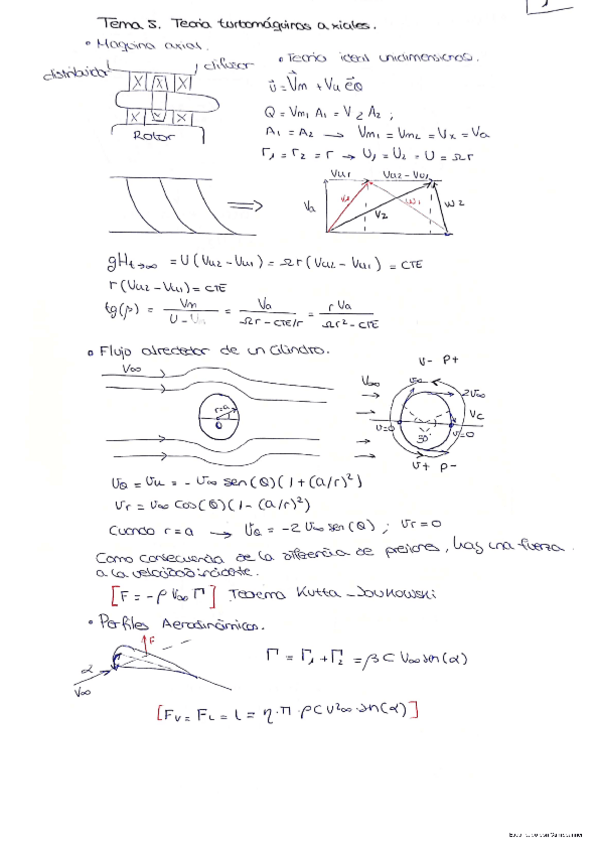 Tema 5. Teoria turbomáquinas axiales.
• Maquina axial.
distribuidor
difusor
Rotor
• Teoria ideal unidimensional.
v⃗ = V⃗m + Vu e⃗θ
Q = Vm1 A1 = V2 A2 ;
A1 = A2 → Vm1 = Vm2 = Vx = Va
r1 = r2 = r → U1 = U2 = U = Ωr
Vu1
Vu2 - Vu1
Va
V2
W1
W2
gHt→∞ = U (Vu2 - Vu1) = Ωr (Vu2 - Vu1) = CTE
r (Vu2 - Vu1) = CTE
tg(β) = Vm / (U - Vu) = Va / (Ωr - CTE/r) = r Va / (Ωr² - CTE)
• Flujo alrededor de un Cilindro.
V∞
r=a
0
V∞
v- p+
2V∞
Vc
v=0
v=0
30°
v+ p-
Vθ = Vu = - V∞ sen(θ) (1 + (a/r)²)
Vr = V∞ cos(θ) (1 - (a/r)²)
Cuando r = a → Vθ = -2 V∞ sen(θ) ; Vr = 0
Como consecuencia de la diferencia de presiones, hay una fuerza
a la velocidad incidente.
[F = -ρ V∞ Γ] Teorema Kutta-Joukowski
• Perfiles Aerodinámicos.
F
α
V∞
Γ = Γ1 + Γ2 = β C V∞ sen(α)
[Fv = FL = L = η·π·ρ C V²∞ · sen(α)]